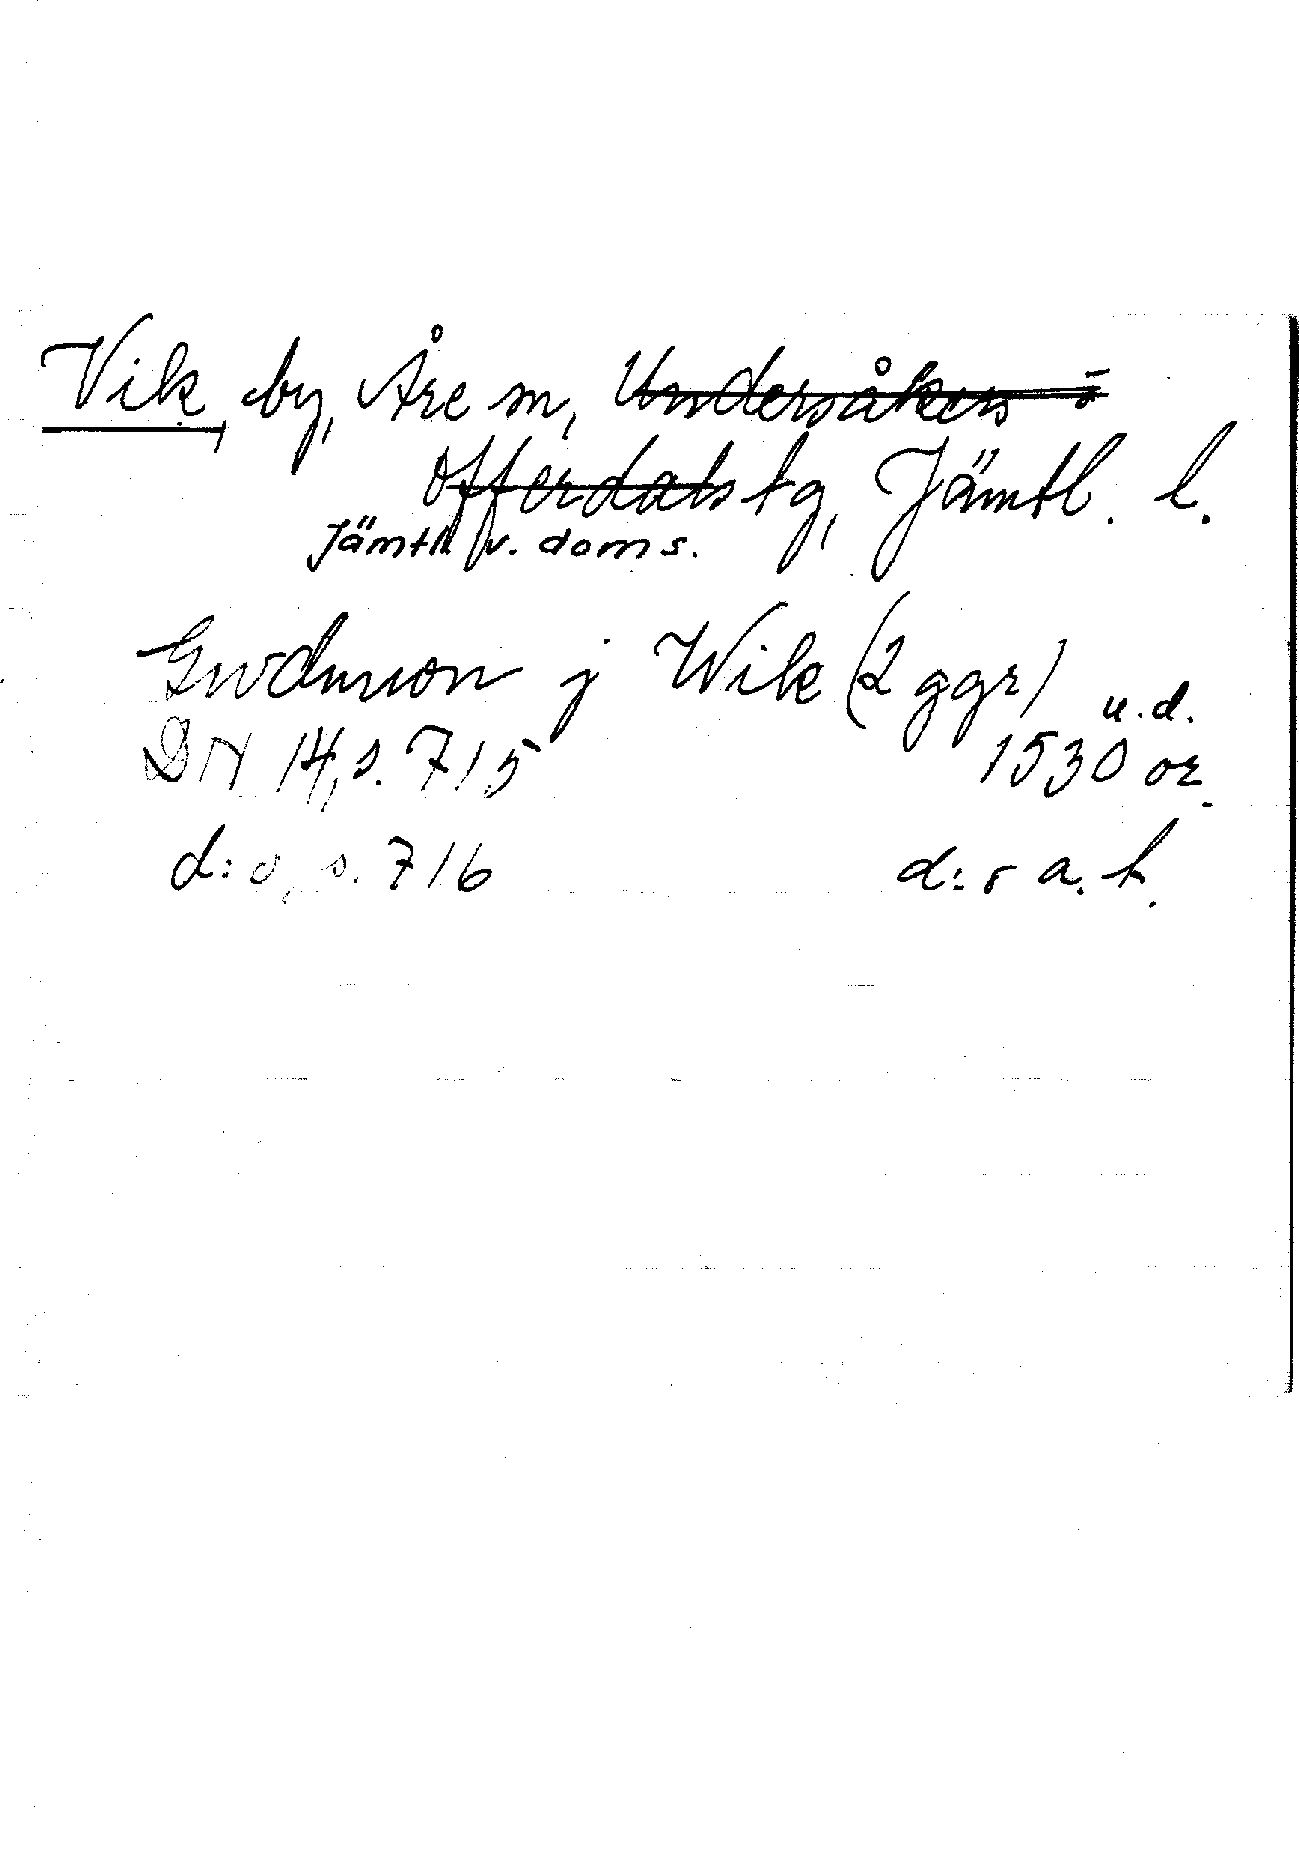 Vik, by, Åre sn, Undersåkers o
Offerdals tg, Jämtl. l.
Jämtl. v. doms.
j Wik (2 ggr)
u.d.
DN 14, s. 715 1530 or.
d:o, s. 716 d:o a. t.